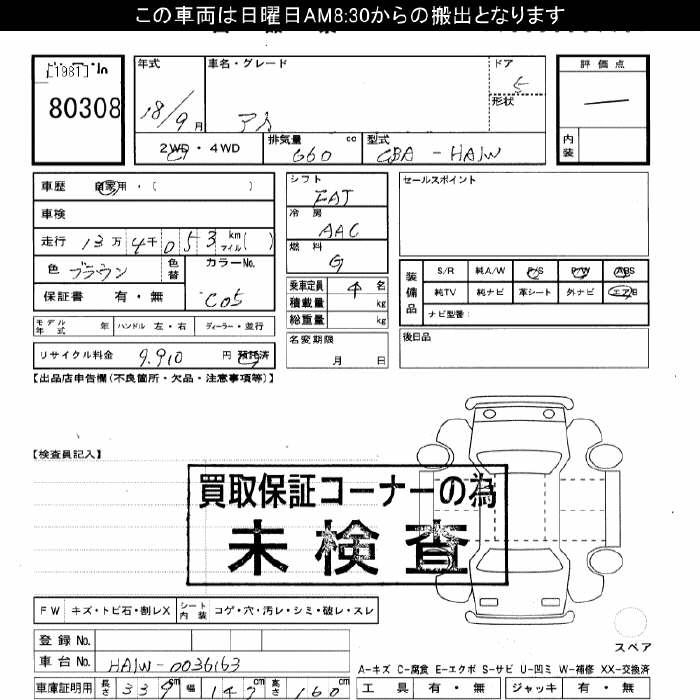 この車両は日曜日AM8:30からの搬出となります
[1981]
80308
年式
車名・グレード
ドア
5
形状
評価点
18/9月
アイ
内装
2WD・4WD
排気量
660
cc
型式
CBA - HA1W
車歴 自家用・( )
シフト
FAT
セールスポイント
車検
冷房
AAC
走行 13万4千053 km マイル( )
燃料
G
色 ブラウン 色替
カラーNo.
C05
保証書 有・無
乗車定員 4 名
積載量 kg
総重量 kg
装備品
S/R 純A/W P/S P/W ABS
純TV 純ナビ 革シート 外ナビ エアB
ナビ型番:
モデル年式 年 ハンドル 左・右 ディーラー・並行
名変期限
月 日
後日品
リサイクル料金 9,910 円 預託済
【出品店申告欄(不良箇所・欠品・注意事項等)】
【検査員記入】
買取保証コーナーの為
未検査
FW キズ・トビ石・割レX シート内装 コゲ・穴・汚レ・シミ・破レ・スレ
スペア
登録No.
車台No. HA1W-0036163
A-キズ C-腐食 E-エクボ S-サビ U-凹ミ W-補修 XX-交換済
車庫証明用 長さ 339 cm 幅 147 cm 高さ 160 cm
工具 有・無 ジャッキ 有・無